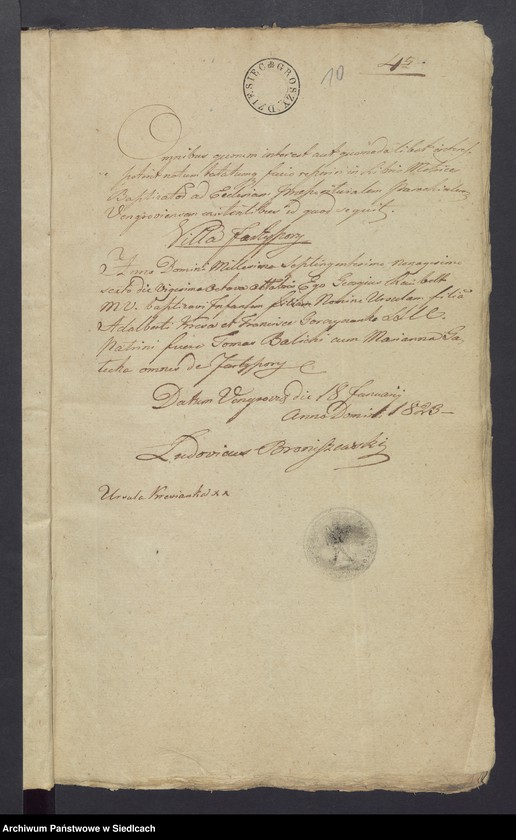 DZIESIĘC GROSZY
10
Omnibus quorum interest aut quomodolibet interesse
poterit notum testatumq facio reperiri in Libris Metrice
Baptisatorum ad Ecclesiam Praeposituralem Parochialem
Vengroviensem id quod sequitur.
Villa Jartypory
Anno Domini Millesimo Septingentesimo nonagesimo
sexto die Vigesima Octava Octobris Ego Georgius
M.V. baptisavi Infantem Nomine Ursulam filiam
Adalberti et Francisce LLCC
Patrini fuere Tomas Balicki cum Marianna Ga
omnes de Jartypory
Datum Vengroviae die 18 Januarij
Anno Domi 1823
Ludovicus Broniszewski
Ursula
Archiwum Państwowe w Siedlcach